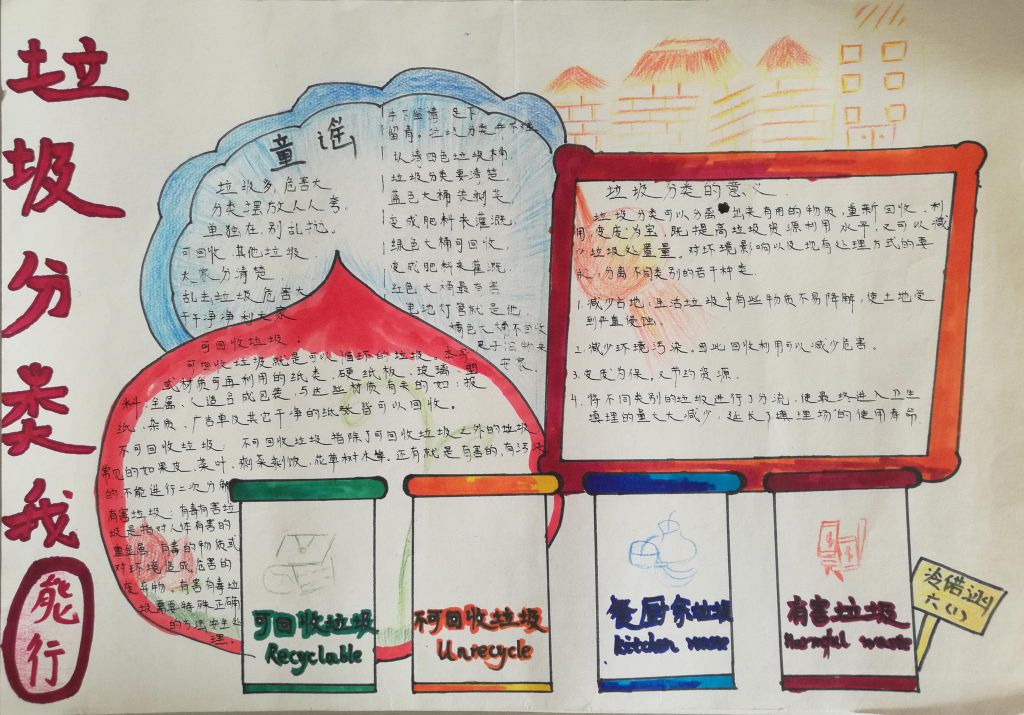 垃圾分类我
能行
童谣
垃圾多，危害大
分类摆放人人夸。
单独在，别乱拉。
可回收，其他垃圾
大家分清楚，
乱丢垃圾危害大
干干净净利大家
手下留情，足下
留青。垃圾分类
认清四色垃圾桶，
垃圾分类要清楚，
蓝色大桶装剩菜
变成肥料来灌溉，
绿色大桶可回收，
变成肥料来灌溉，
红色大桶最有害
电池灯管就是他，
橘色大桶不可收
可回收垃圾。
可回收垃圾就是可以循环的垃圾。本身
或材质可再利用的纸类、硬纸板、玻璃、塑
料、金属、人造合成包装，与这些材质有关的如：报
纸、杂质、广告单及其它干净的纸张皆可以回收。
不可回收垃圾：不可回收垃圾指除了可回收垃圾之外的垃圾
常见的如果皮，菜叶，剩菜剩饭，花草树木等。还有就是有害的，有污染
的不能进行二次分解
有害垃圾：有毒有害垃
圾是指对人体有害的
重金属，有毒的物质或
对环境造成危害的
废弃物。有害有毒垃
圾需要特殊正确
的方法安全处
理
垃圾分类的意义
垃圾分类可以分离出来有用的物质，重新回收、利
用，变废为宝，既提高垃圾资源利用水平，又可以减
少垃圾处置量。对环境影响以及现有处理方式的要
求，分离不同类别的若干种类.
1.减少占地：生活垃圾中有些物质不易降解，使土地受
到严重侵蚀。
2.减少环境污染。因此回收利用可以减少危害。
3.变废为保，又节约资源.
4.将不同类别的垃圾进行了分流，使最终进入卫生
填埋的量大大减少，延长了填埋场的使用寿命
可回收垃圾
Recyclable
不可回收垃圾
Unrecycle
餐厨余垃圾
kitchen waste
有害垃圾
Harmful waste
六(1)